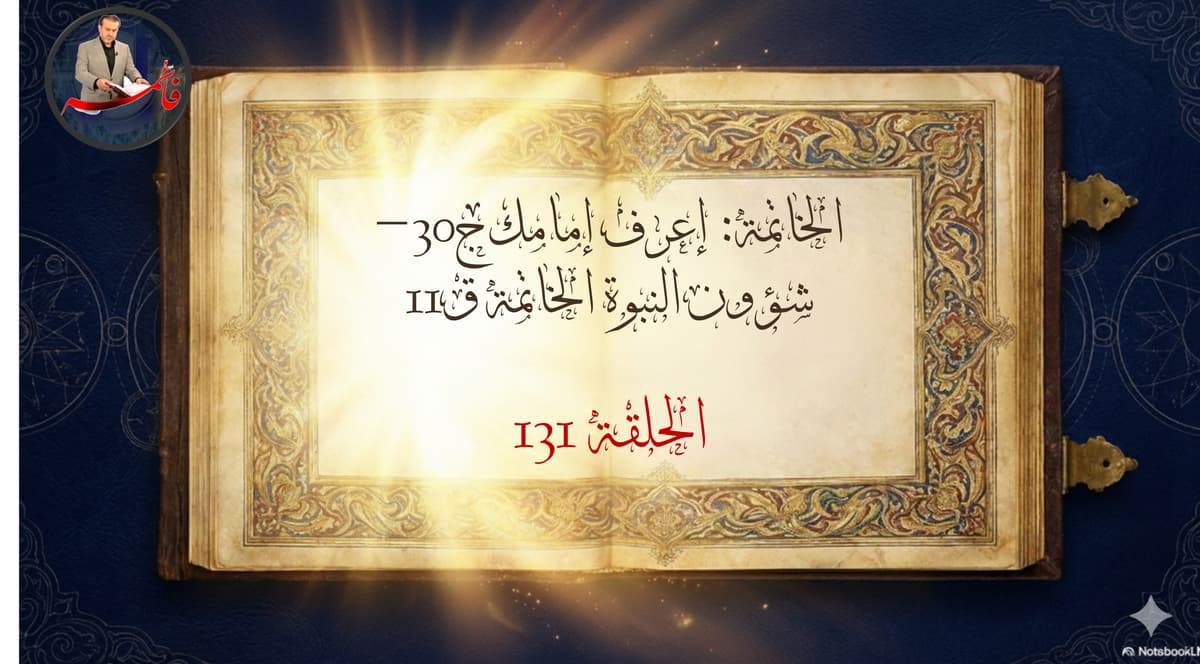 فاطمة
الخاتمة: إعرف إمامك ج30 –
شؤون النبوة الخاتمة ق11
الحلقة 131
NotsbookLM